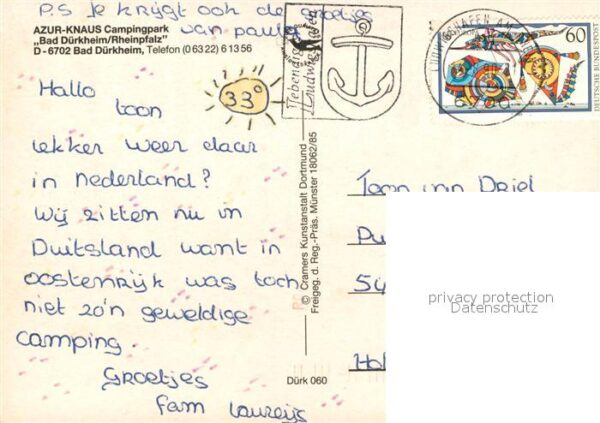 P.S Je krijgt ook de groetjes
van paula
AZUR-KNAUS Campingpark
„Bad Dürkheim/Rheinpfalz"
D - 6702 Bad Dürkheim, Telefon (0 63 22) 6 13 56
33°
Hallo
toon
lekker weer daar
in nederland?
wij zitten nu in
Duitsland want in
oostenrijk was toch
niet zo'n geweldige
camping.
Groetjes
fam laureijs
© Cramers Kunstanstalt Dortmund
Freigeg. d. Reg.-Präs. Münster 18062/85
Dürk 060
lebendig
Ludwigshafen
LUDWIGSHAFEN AM
60
DEUTSCHE BUNDESPOST
Toon van Driel
Pu
54
Hol
privacy protection
Datenschutz